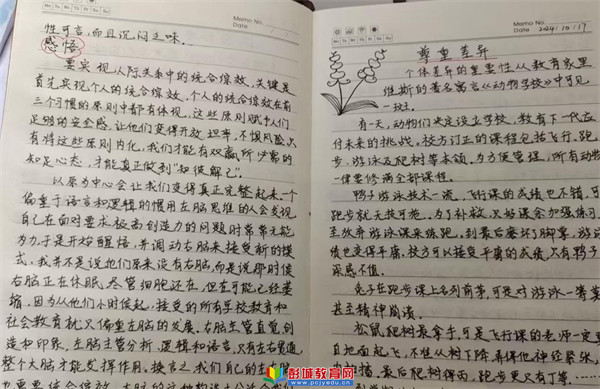 性可言,而且沉闷乏味.
感悟
要实现人际关系中的统合综效,关键是
首先实现个人的统合综效,个人的统合综效在前
三个习惯的原则中都有体现,这些原则赋予人们
足够的安全感,让他们变得开放、坦率,不惧风险,只
有将这些原则内化,我们才能有双赢所必需的
知足心态,才能真正做到"知彼解己".
以原为中心会让我们变得真正完整起来.一个
偏重于语言和逻辑的惯用左脑思维的人会发现
自己在面对要求极高创造力的问题时常常无能
为力,于是开始醒悟,并调动右脑来接受新的模
式,我并不是说他们原来没有右脑,而是说那时候
右脑正在休眠,尽管细胞还在,但查可能已经萎
缩,因为从他们小时候起,接受的所有学校教育和
社会教育就只偏重左脑的发展.右脑主管直觉,创
造和印象,左脑主管分析、逻辑和语言,只有左右贯通,
整个大脑才能发挥作用.换言之,我们自己的左
Memo No.
Date
Memo No.
Date 2024/10/17
尊重差异
个体差异的重要性从教育家里
维斯的著名寓言《动物学校》中可见
一斑.
有一天,动物们决定设立学校,教育下一代应
付未来的挑战,校方订正的课程包括飞行、跑
步、游泳及爬树等本领,为方便管理,所有动物
一律要修满全部课程.
鸭子游泳技术一流,飞行课的成绩也不错,可
跑步就无技可施.为了补救,只好课余加强练习,
甚至放弃游泳课来练跑,到最后磨坏了脚掌,游泳
成绩也变得平庸.校方可以接受平庸的成绩,只有鸭子
深感不值.
兔子在跑步课上名列前茅,可是对游泳一筹莫
甚至精神崩溃.
松鼠爬树最拿手,可是飞行课的老师一定要
自地面起飞,不准从树下降,弄得他神经紧张,
最后爬树得丙,跑步更只有丁
彭城教育网
www.pcjyedu.cn